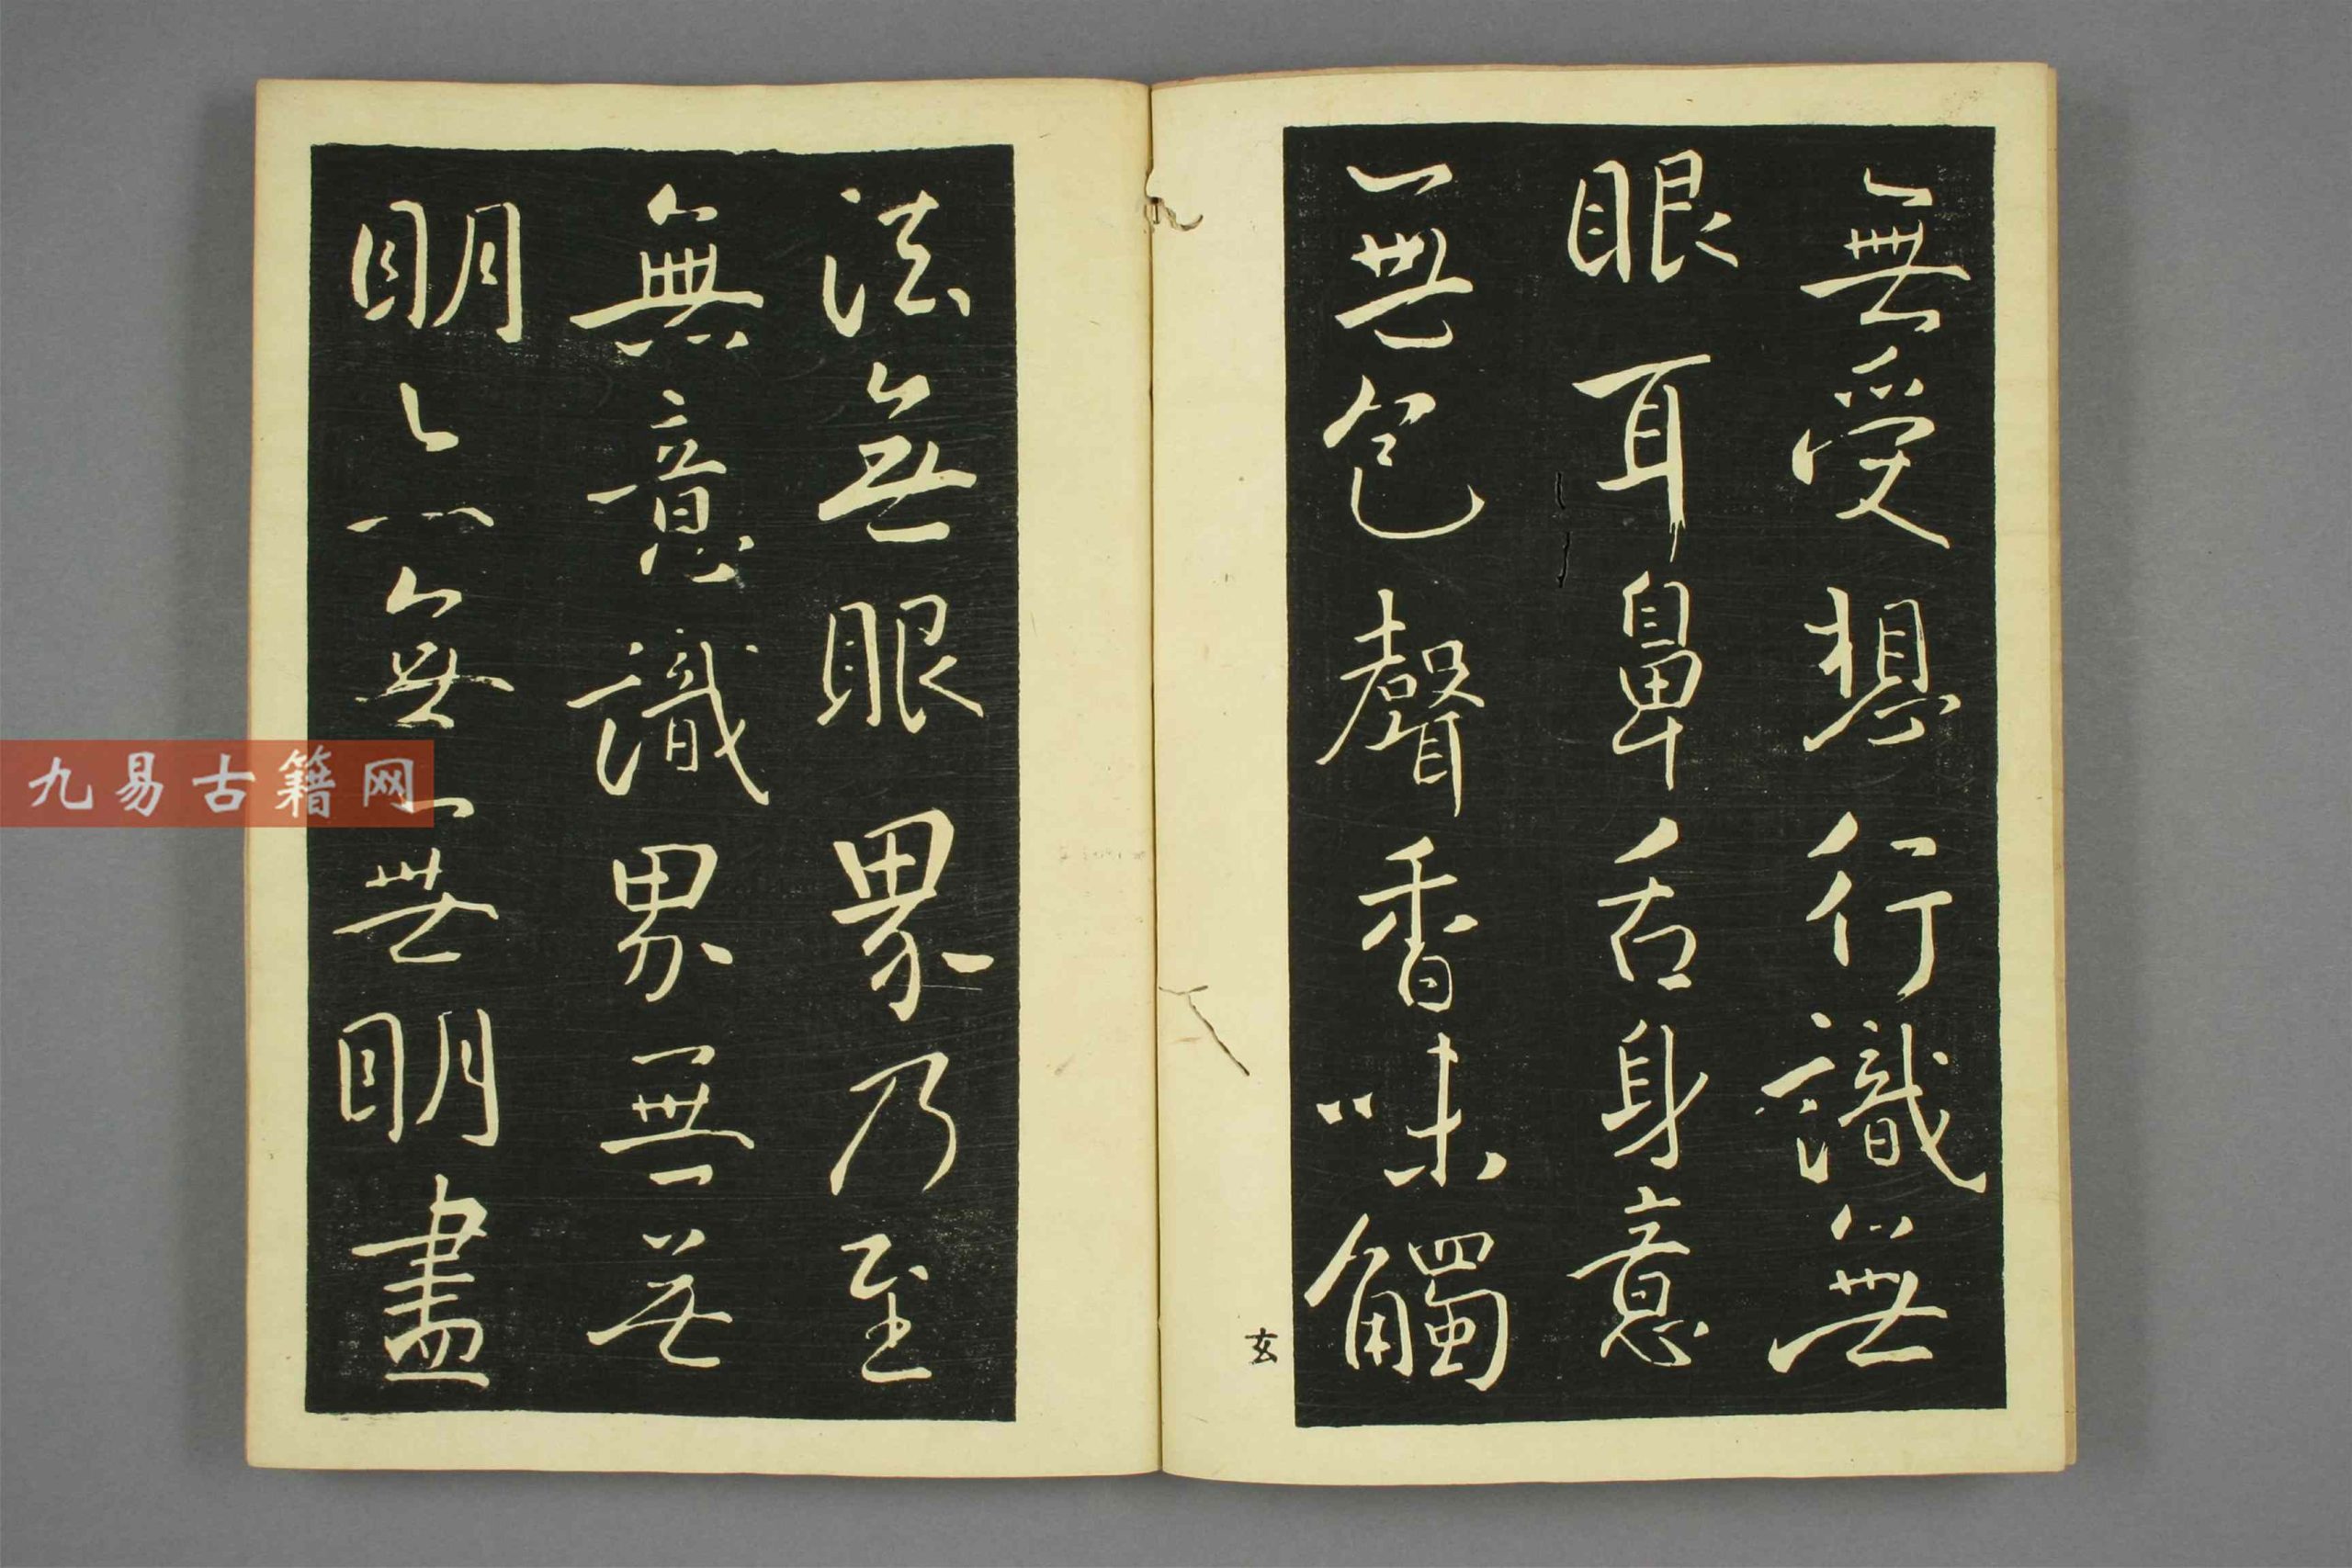 無受想行識無
眼耳鼻舌身意
無色聲香味觸
玄
法無眼界乃至
無意識界無無
明亦無無明盡
九易古籍网